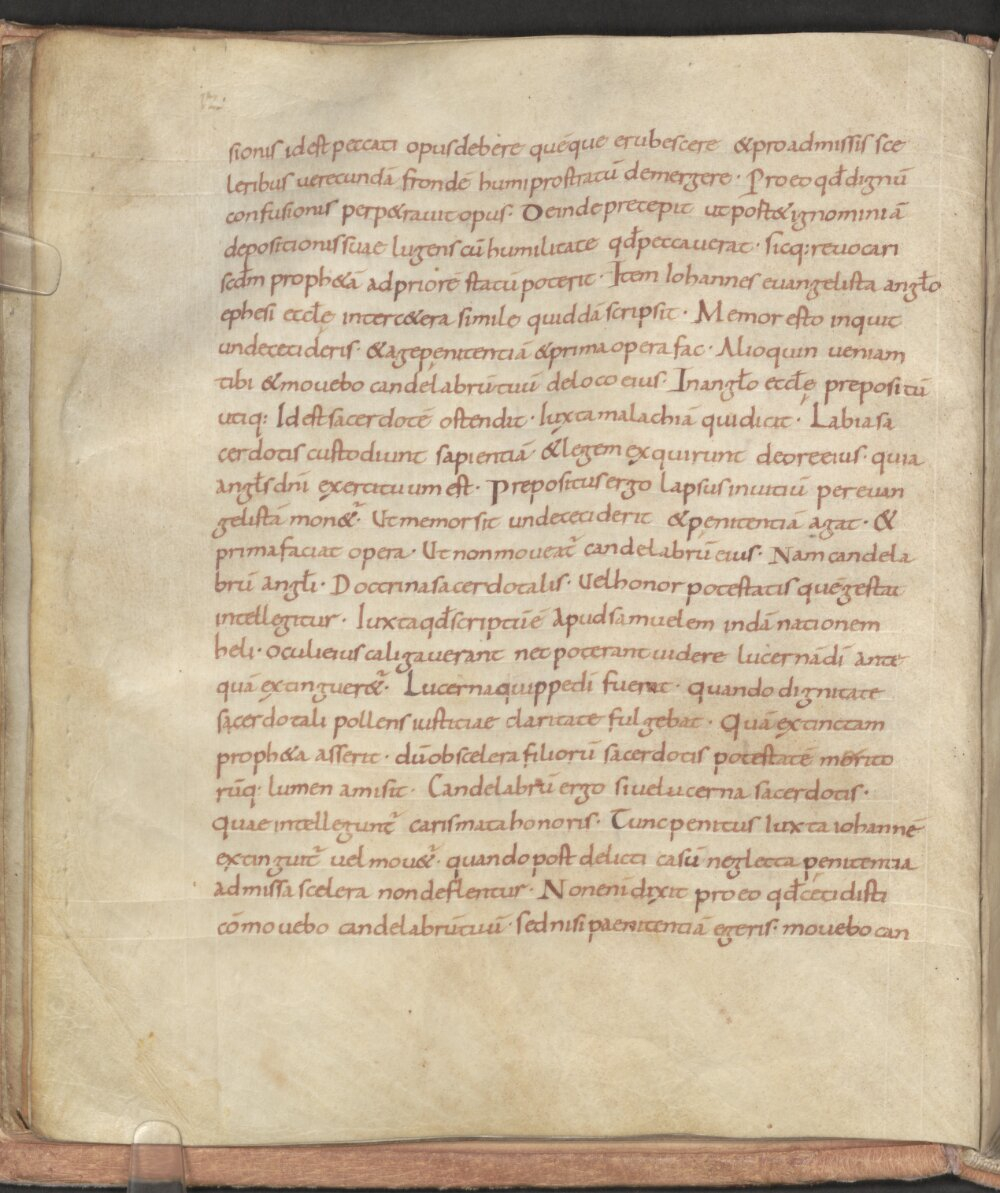 sionis id est peccati opus debere quęque erubescere & pro admissis sce
leribus verecundā frondē humi prostratū demergere · Pro eo qđ dignū
confusionis perp&ravit opus · Deinde precepit ut post & ignominiā
depositionis suae lugens cū humilitate qđ peccaverat · sicq; revocari
secđm proph&ā ad priorē statū poterit · Item Iohannes evangelista angło
ephesi eccłę inter c&era simile quiddā scripsit · Memor esto inquit
unde cecideris · & age penitentiā & prima opera fac · Alioquin veniam
tibi & movebo candelabrū tuū de loco eius · In angło eccłę prepositū
utiq; Id est sacerdotē ostendit · Iuxta malachiā qui dicit · Labia sa
cerdotis custodiunt sapientiā & legem exquirunt de ore eius · quia
angłs dnī exercituum est · Prepositus ergo lapsus in vitiū per evan
gelistā mon&ᷣ · Ut memor sit unde ceciderit & penitentiā agat · &
prima faciat opera · Ut non moveatᷣ candelabrū eius · Nam candela
brū angłi · Doctrina sacerdotalis · Vel honor potestatis quē gestat
intellegitur · Iuxta qđ scriptū ē Apud samuelem in dānationem
heli · oculi eius caligaverant nec poterant videre lucernā dī ante
quā extinguer&ᷣ · Lucerna quippe dī fuerat · quando dignitate
sacerdotali pollens iusticiae claritate fulgebat · Quā extinctam
proph&a asserit · dū ob scelera filiorū sacerdotis potestatē merito
rūq; lumen amisit · Candelabrū ergo sive lucerna sacerdotis ·
Quae intelleguntᷣ carismata honoris · Tunc penitus Iuxta iohannē
extinguitᷣ vel mov&ᷣ · quando post delicti casū neglecta penitentia
admissa scelera non deflentur · Non enī dixit pro eo qđ cecidisti
cōmovebo candelabrū tuū · sed nisi paenitentiā egeris · movebo can